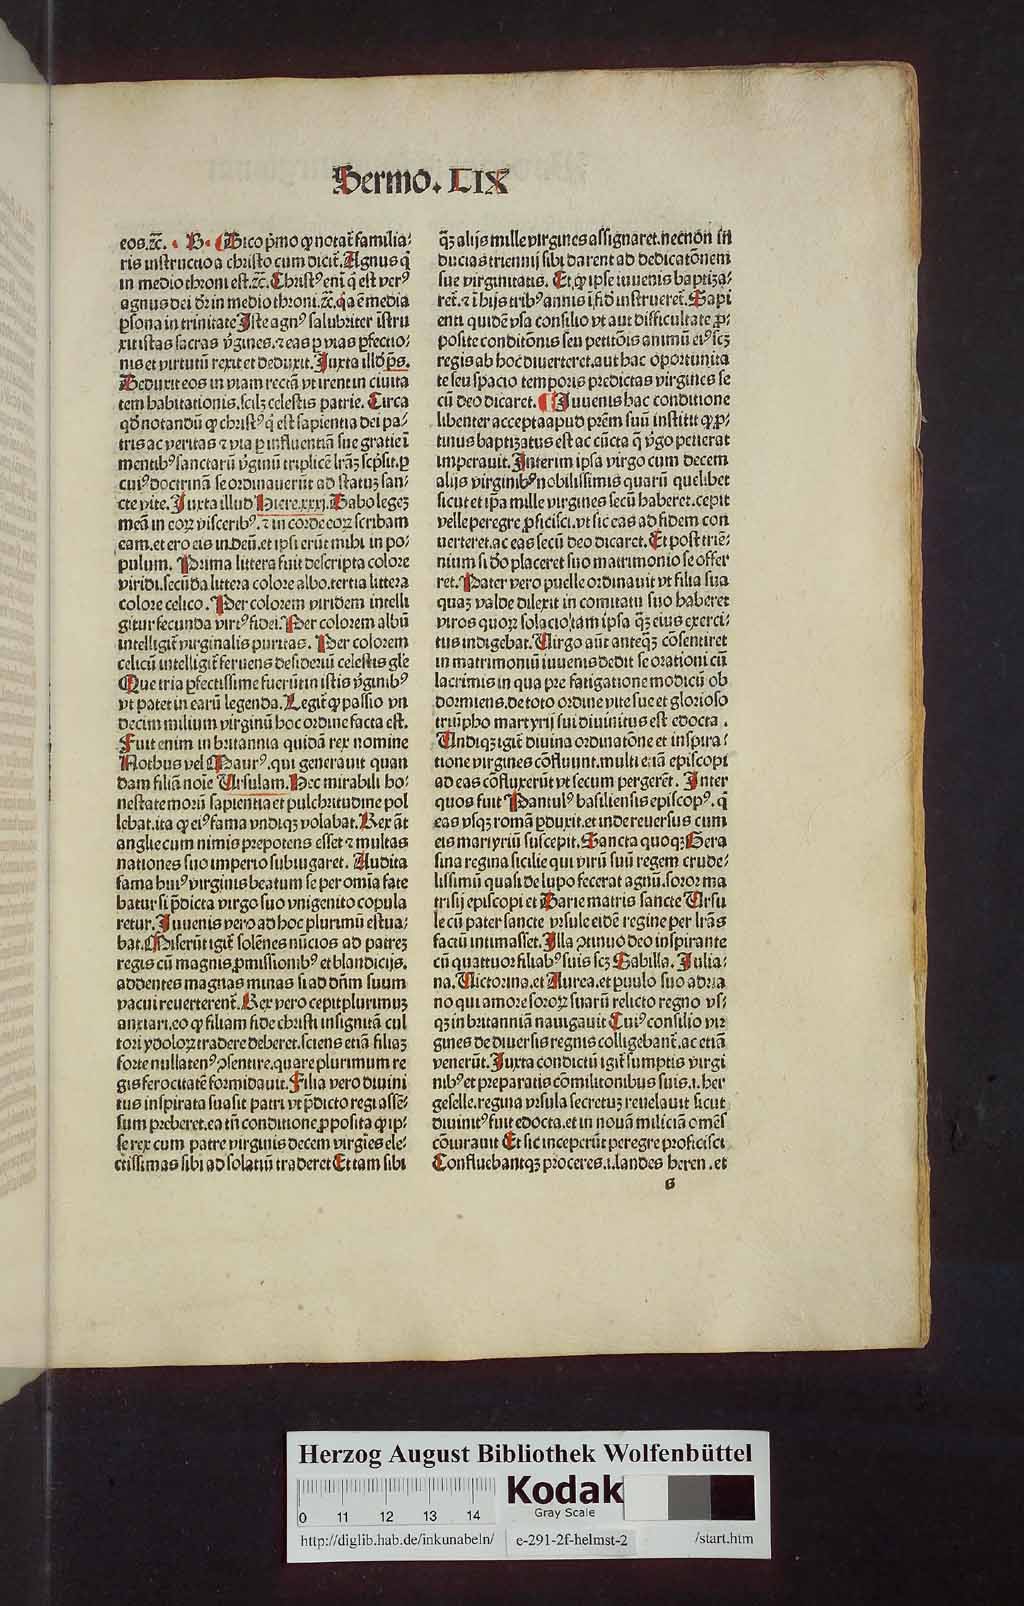 Sermo. LIX
eos.ꝛc̄. B. Dico p̄mo ꝙ notat̄ familia⸗
ris instructio a christo cum dicit̄. Agnus q̄
in medio throni est.ꝛc̄. Christꝰ eni q̄ est verꝰ
agnus dei dr̄ in medio throni.ꝛc̄. q̄a ē media
ꝑsona in trinitate Iste agnꝰ salubriter istru
xit istas sacras v̄gines.⁊ eas ꝑ vias ꝑfectio⸗
nis et virtutū rexit et deduxit. Iuxta illd̄ ps̄.
Deduxit eos in viam rectā vt irent in ciuita
tem habitationis.scilꝫ celestis patrie. Circa
qd̄ notandū ꝙ christꝰ q̄ est sapientia dei pa⸗
tris ac veritas ⁊ via ꝑ influentiā sue gratie ī
mentibꝰ sanctarū v̄ginū triplicē lr̄aꝫ scp̄sit.ꝑ
cuiꝰ doctrinā se ordinauerūt ad statuꝫ san⸗
cte vite. Iuxta illud Hiere.xxxj. Dabo legeꝫ
meā in eoꝝ visceribꝰ.⁊ in corde eoꝝ scribam
eam.et ero eis in deū.et ipsi erūt mihi in po⸗
pulum. Prima littera fuit descripta colore
viridi.secūda littera colore albo.tertia littera
colore celico. Per colorem viridem intelli
gitur fecunda virtꝰ fidei. Per colorem albū
intelligit̄ virginalis puritas. Per colorem
celicū intelligit̄ feruens desideriū celestis gl̄e
Que tria ꝑfectissime fuerūt in istis v̄ginibꝰ
vt patet in earū legenda. Legit̄ ꝙ passio vn
decim milium virginū hoc ordine facta est.
Fuit enim in britannia quidā rex nomine
Nothus vel Maurꝰ.qui generauit quan
dam filiā noīe Ursulam. Hec mirabili ho⸗
nestate morū sapientia et pulchritudine pol
lebat.ita ꝙ eiꝰ fama vndiqꝫ volabat. Rex āt
anglie cum nimis prepotens esset ⁊ multas
nationes suo imperio subiugaret. Audita
fama huiꝰ virginis beatum se per omīa fate
batur si p̄dicta virgo suo vnigenito copula
retur. Iuuenis vero ad hoc plurimū estua⸗
bat. Miserūt igit̄ solēnes nūcios ad patreꝫ
regis cū magnis ꝓmissionibꝰ et blandicijs.
addentes magnas minas si ad dn̄m suum
vacui reuerterent̄. Rex vero cepit plurimuꝫ
anxiari.eo ꝙ filiam fide christi insignitā cul
tori ydoloꝝ tradere deberet.sciens etiā filiaꝫ
forte nullatenꝰ ꝯsentire.quare plurimum re
gis ferocitatē formidauit. Filia vero diuini
tus inspirata suasit patri vt p̄dicto regi assē⸗
sum preberet.ea tn̄ conditione ꝓposita ꝙ ip⸗
se rex cum patre virginis decem virgīes ele⸗
ctissimas sibi ad solatiū traderet Et tam sibi
qꝫ̄ alijs mille virgines assignaret.necnon in
ducias triennij sibi darent ad dedicatōnem
sue virginitatis. Et ꝙ ipse iuuenis baptiza⸗
ret̄.⁊ ī hijs tribꝰ annis ī fid̄ instrueret̄. Sapi
enti quidē vsa consilio vt aut difficultate ꝓ⸗
posite conditōnis seu petitōis animū eiꝰ scꝫ
regis ab hoc diuerteret.aut hac oportunita
te seu spacio temporis predictas virgines se
cū deo dicaret. Iuuenis hac conditione
libenter accepta apud prēm suū institit ꝙ ꝓ⸗
tinus baptizatus est ac cūcta q̄ v̄go petierat
imperauit. Interim ipsa virgo cum decem
alijs virginibꝰ nobilissimis quarū quelibet
sicut et ip̄a mille virgines secū haberet.cepit
velle peregre ꝓficisci.vt sic eas ad fidem con
uerteret.ac eas secū deo dicaret. Et post triē⸗
nium si d̄o placeret suo matrimonio se offer
ret. Pater vero puelle ordinauit vt filia sua
quaꝫ valde dilexit in comitatu suo haberet
viros quoꝝ solacio tam ipsa qꝫ̄ eius exerci⸗
tus indigebat. Uirgo aūt anteqꝫ̄ cōsentiret
in matrimoniū iuuenis dedit se orationi cū
lacrimis in qua pre fatigatione modicū ob
dormiens.de toto ordine vite sue et glorioso
triūpho martyrij sui diuinitus est edocta.
Undiqꝫ igit̄ diuina ordinatōne et inspira⸗
tione virgines cōfluunt.multi etiā episcopi
ad eas cōfluxerūt vt secum pergerēt. Inter
quos fuit Pantulꝰ basiliensis episcopꝰ. q̄
eas vsqꝫ romā ꝑduxit.et inde reuersus cum
eis martyriū suscepit. Sancta quoqꝫ Gera
sina regina sicilie qui virū suū regem crude⸗
lissimū quasi de lupo fecerat agnū.soror ma
trisij episcopi et Darie matris sancte Ursu
le cū pater sancte vrsule eidē regine per lr̄as
factū intimasset. Illa ꝯtinuo deo inspirante
cū quattuor filiabꝰ suis scꝫ Babilla. Iulia⸗
na. Uictorina.et Aurea.et ꝑuulo suo adria
no qui amore soroꝝ suarū relicto regno vs⸗
qꝫ in britanniā nauigauit Cuiꝰ consilio vir
gines de diuersis regnis colligebant̄.ac etiā
venerūt. Iuxta condictū igit̄ sumptis virgi
nibꝰ et preparatis cōmilitonibus suis.i.her
geselle.regina vrsula secretuꝫ reuelauit sicut
diuinitꝰ fuit edocta.et in nouā miliciā omēs
cōiurauit Et sic inceperūt peregre proficisci
Confluebantqꝫ proceres.i.landes heren.et
G
Herzog August Bibliothek Wolfenbüttel
0 11 12 13 14
Kodak
Gray Scale
http://diglib.hab.de/inkunabeln/ e-291-2f-helmst-2 /start.htm